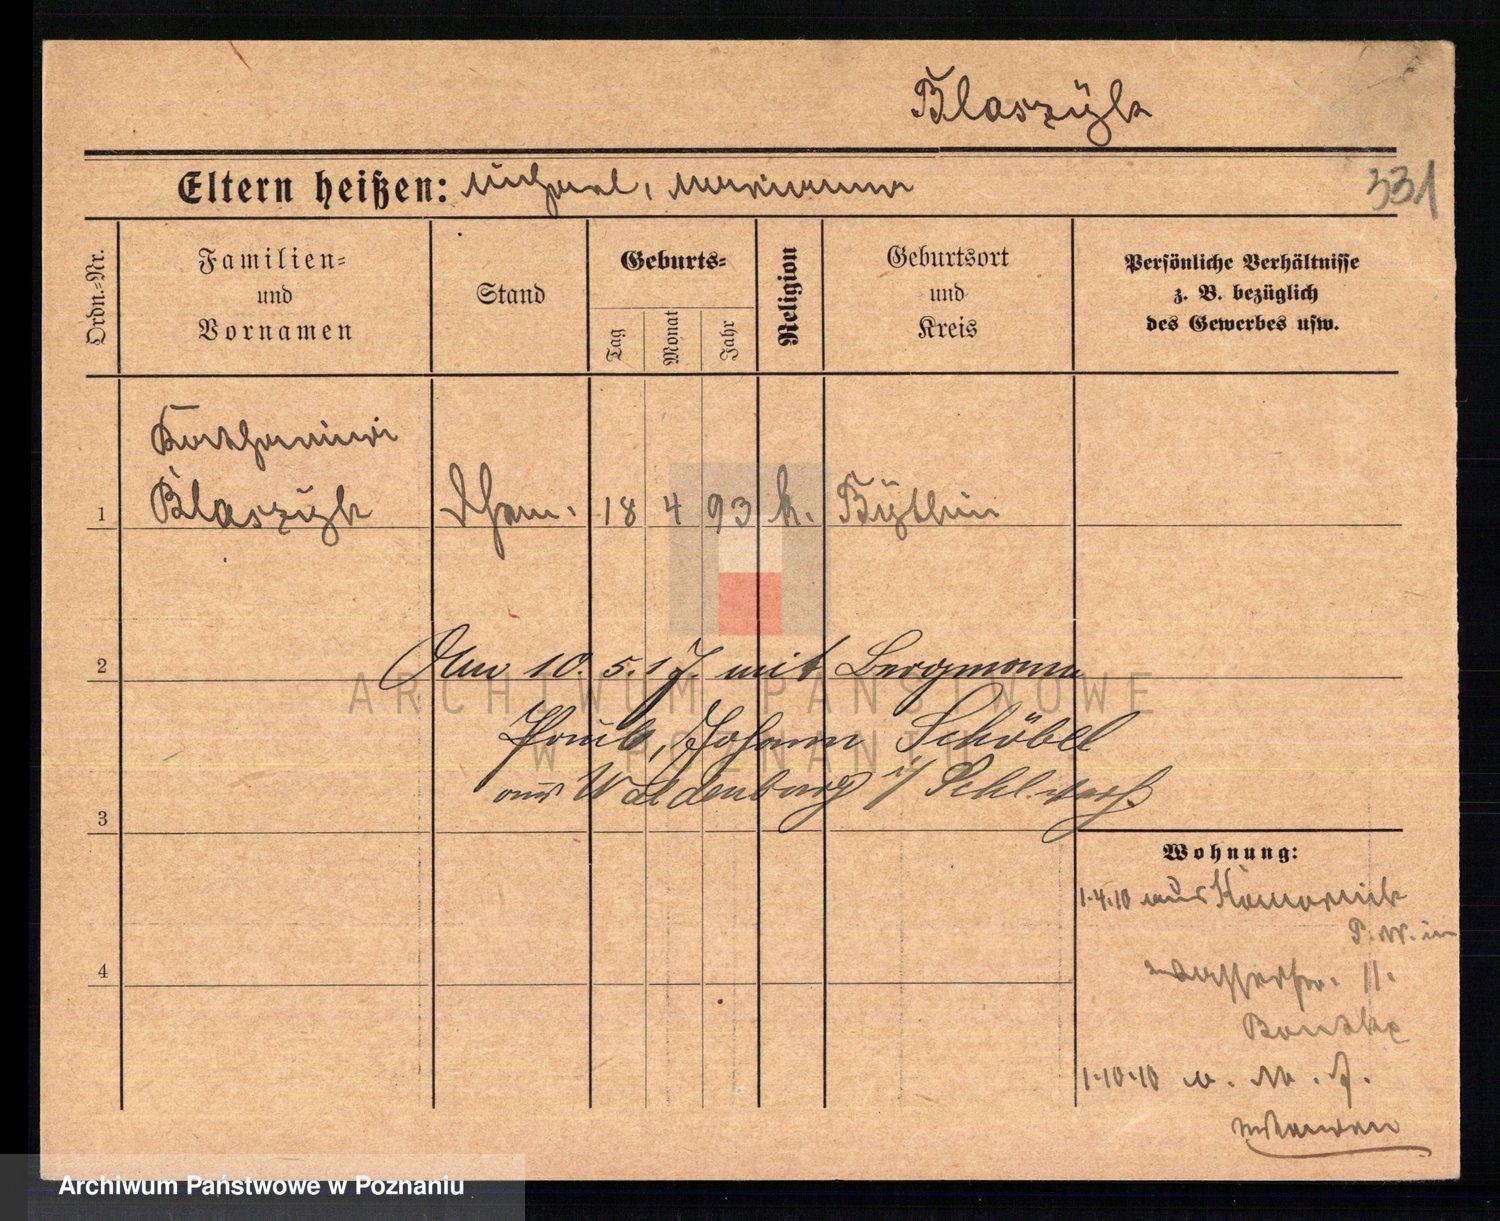 Blaszyk
Eltern heißen: Michael, Marianna
331
Ordn.-Nr.
Familien-
und
Vornamen
Stand
Geburts-
Tag
Monat
Jahr
Religion
Geburtsort
und
Kreis
Persönliche Verhältnisse
z. B. bezüglich
des Gewerbes usw.
Katharina
1 Blaszyk 18 4 93 k. Bythin
2 Am 10. 5. 17. mit Bergmann
Paul, Johann Schöbel
aus Waldenburg i/ Schl. verh.
3
Wohnung:
1.4.10 aus Komornik
P. W. in
Wasserstr. 11.
4
1.10.10
ARCHIWUM PAŃSTWOWE
W POZNANIU
Archiwum Państwowe w Poznaniu